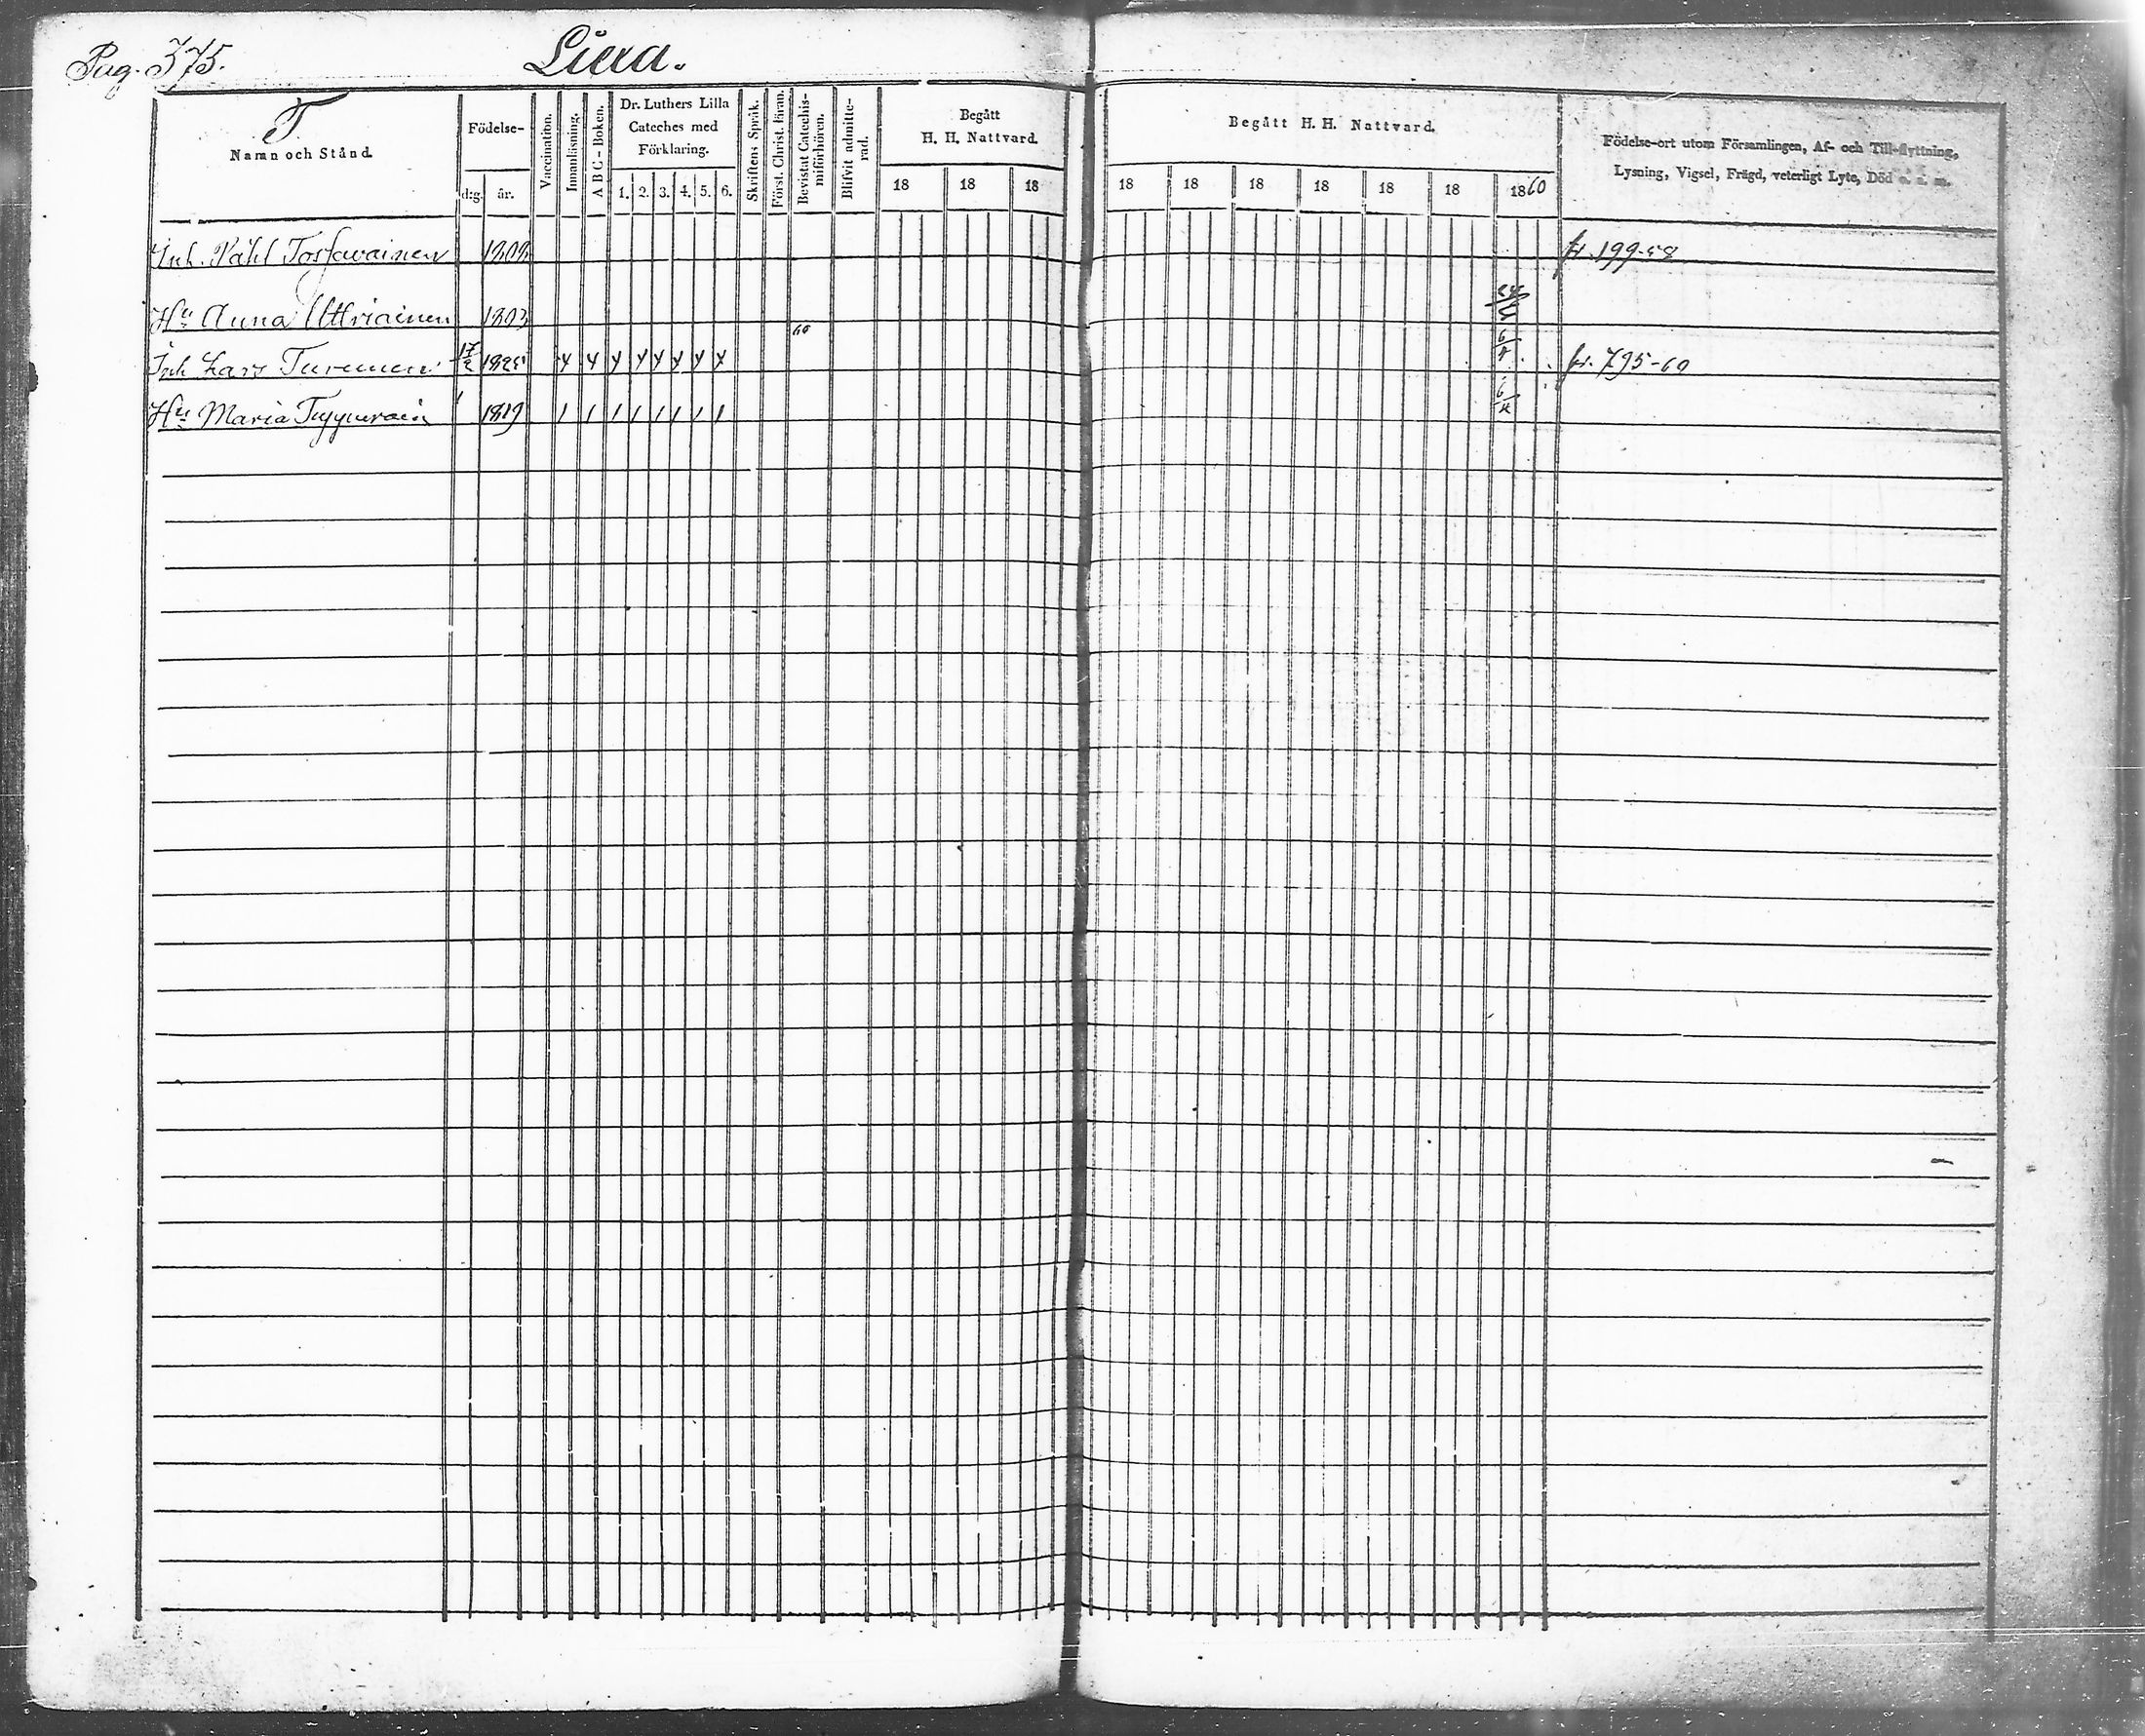 Pag. 375.
Liera.
T
Namn och Stånd.
Födelse-
dag.
år.
Vaccination.
Innanläsning.
ABC-Boken.
Dr. Luthers Lilla
Cateches med
Förklaring.
1. 2. 3. 4. 5. 6.
Skriftens Språk.
Först. Christ. läran.
Bevistat Catechis-
miförhören.
Blifvit admitte-
rad.
Begått
H. H. Nattvard.
18 18 18
Begått H. H. Nattvard.
18 18 18 18 18 18 1860
Födelse-ort utom Församlingen, Af- och Till-flyttning,
Lysning, Vigsel, Frägd, veterligt Lyte, Död o. s. m.
Inh. Påhl Tosfavainen 1808 fr. 199-58
Hu Anna Uttriainen 1803 60
Inh Lars Turunen 17/2 1825 fr. 795-60
Hu Maria 1819